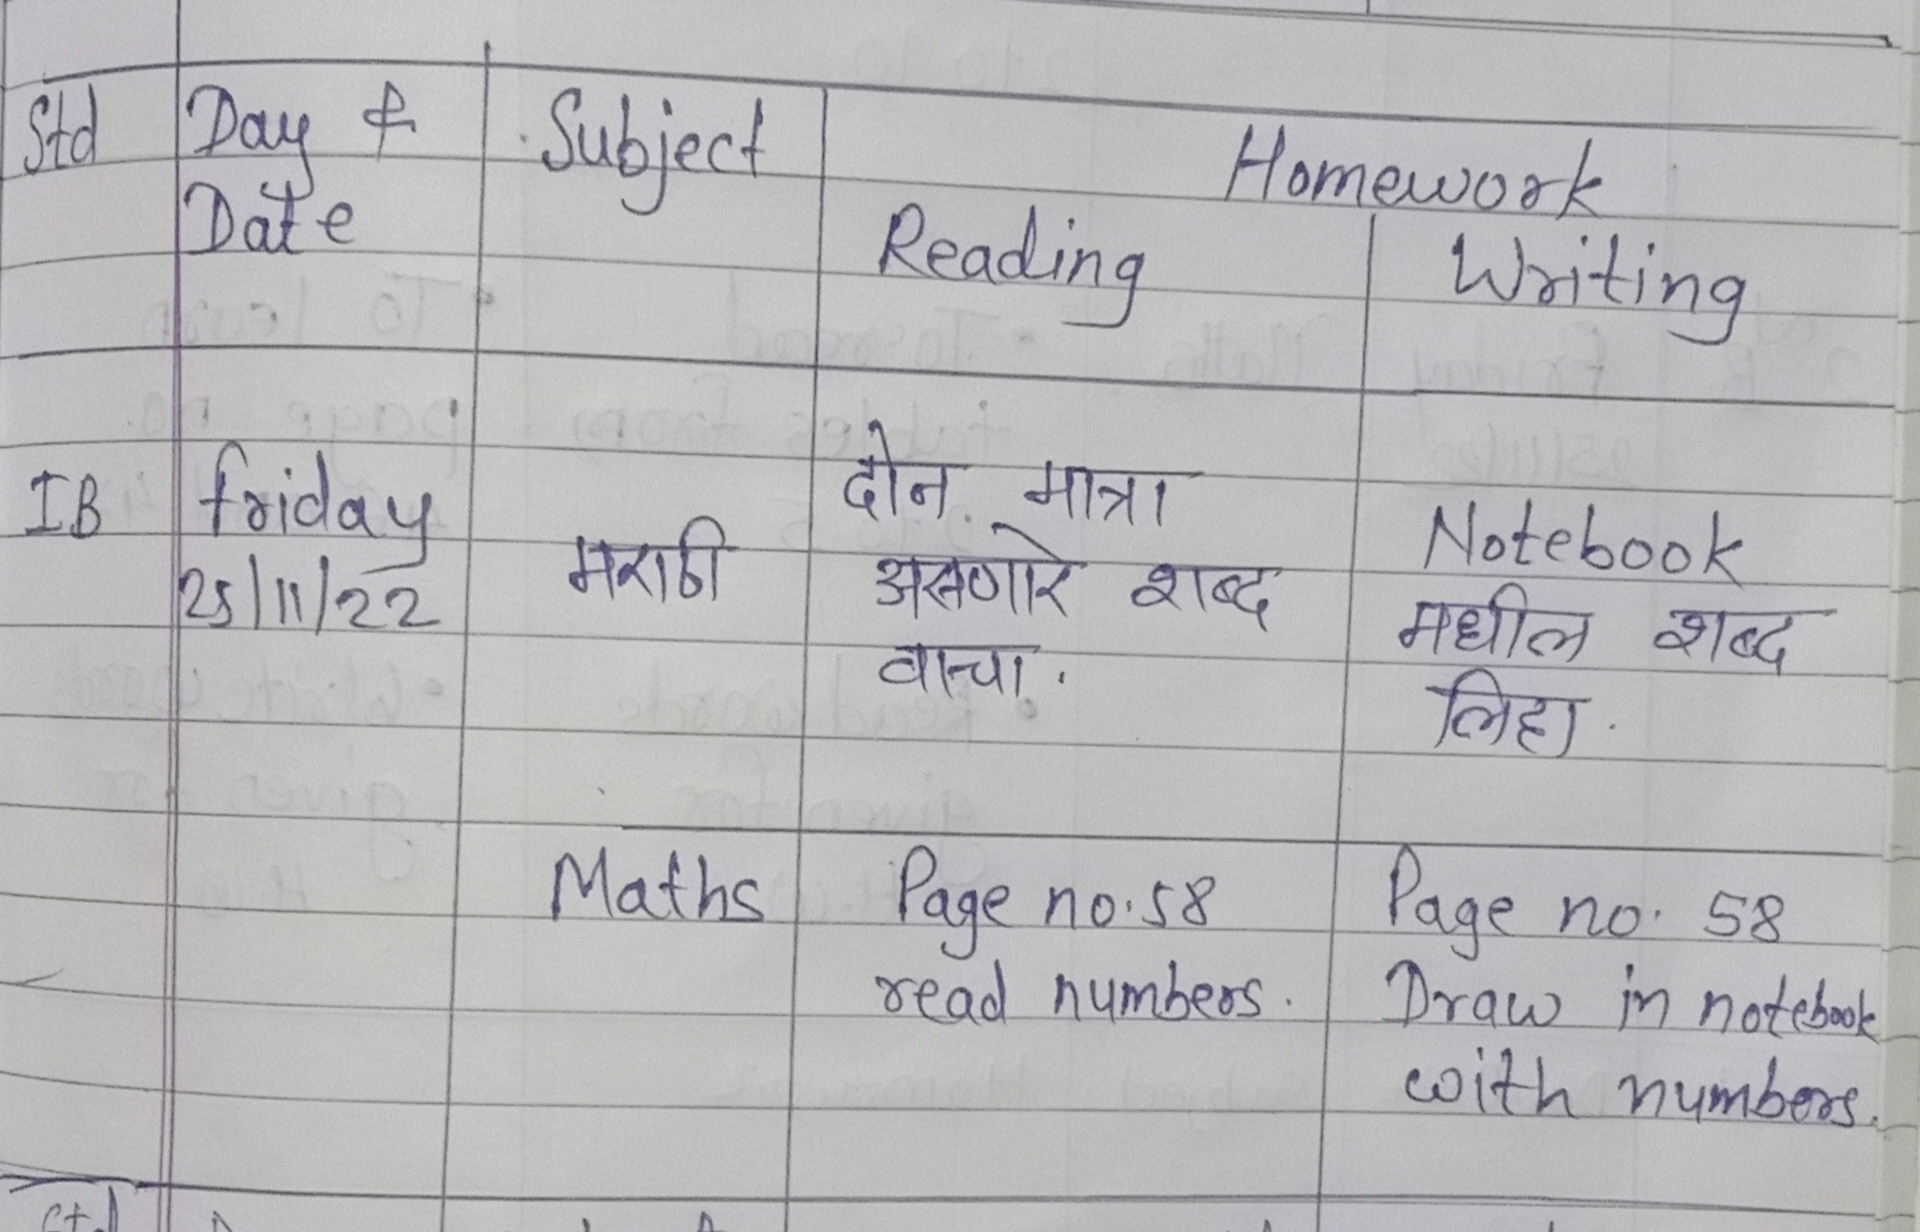 Std Day & Subject Homework
Date Reading Writing
IB friday मराठी दोन मात्रा Notebook
25/11/22 असणारे शब्द मधील शब्द
वाचा. लिहा.
Maths Page no. 58 Page no. 58
read numbers. Draw in notebook
with numbers.
Std